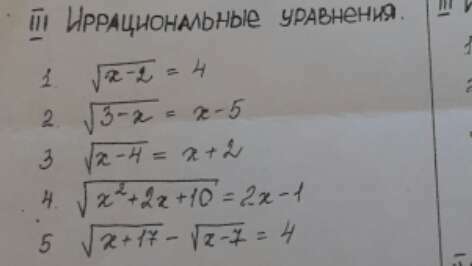 III Иррациональные уравнения.
1. √(x-2) = 4
2. √(3-x) = x-5
3 √(x-4) = x+2
4. √(x²+2x+10) = 2x-1
5 √(x+17) - √(x-7) = 4
III